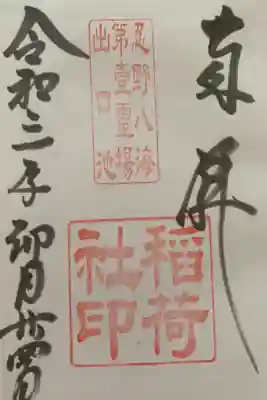 奉拝
忍野八海
第壹霊場
出口池
稲荷
社印
令和二子卯月廿四日